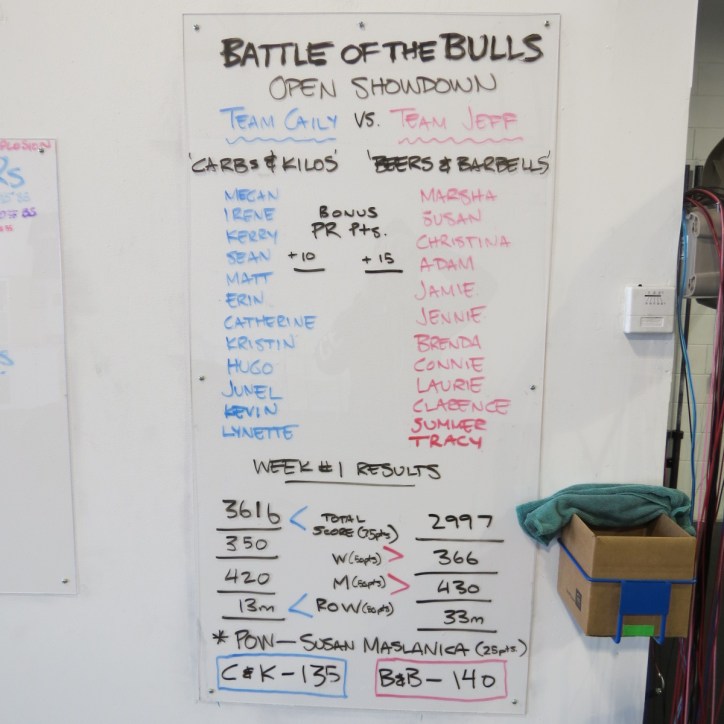 BATTLE OF THE BULLS
OPEN SHOWDOWN
TEAM CAILY VS. TEAM JEFF
'CARBS & KILOS' 'BEERS & BARBELLS'
MEGAN
IRENE
KERRY
SEAN
MATT
ERIN
CATHERINE
KRISTIN
HUGO
JUNEL
KEVIN
LYNETTE
BONUS
PR Pts.
+10 +15
MARSHA
SUSAN
CHRISTINA
ADAM
JAMIE
JENNIE
BRENDA
CONNIE
LAURIE
CLARENCE
SUMLER
TRACY
WEEK #1 RESULTS
3616 < TOTAL SCORE (75pts) 2997
350 W (50pts) > 366
420 M (50pts) > 430
13m < ROW (50pts) 33m
* POW — SUSAN MASLANICA (25pts.)
C & K - 135 B&B - 140